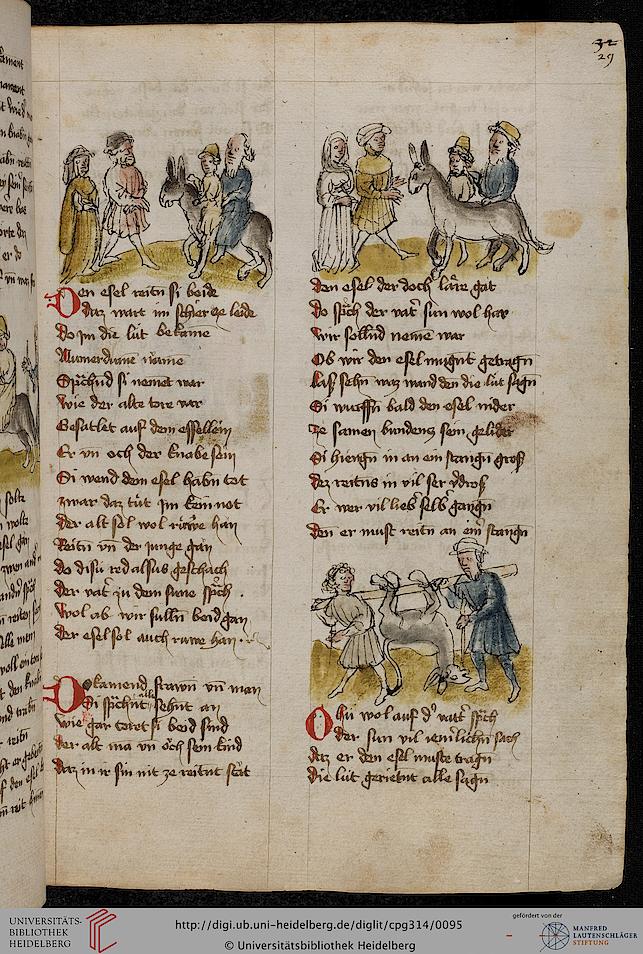 32
29
Den esel reitn si beide
Daz wart im schier ze leide
Do im die lüt bekame
Wunderdiume name
Sprechnd si nemet war
wie der alte tore var
Gesatlet auf dem essellein
Er vn och der knabe sein
Si wend dem esel habn tot
zwar daz tüt im kein not
der alt sol wol rüwe han
Reitn vn der junge gan
do disü red alsus geschach
der vatr zu dem sune sprch
wol ab wir sulln beid gan
der esel sol auch ruwe han
Do kamend frawn vn man
Si sprchnt sehnt an
wie gar toret si beid sind
der alt ma vn och sein kind
daz in ir sin nit ze reitnt stat
den esel der doch läre gat
do sprch der vatr sun wol har
wir sollnd neme war
Ob wir den esel mügnt getragn
Laß sehn waz wand den die lüt sagn
Si wurffn bald den esel nider
ze samen bundenz sein gelider
Si hiengn in an ein stangn groß
dez reitns in vil ser vdroß
Er wer vil liebr selbr gangn
den er must reitn an eim stangn
Ohü wol auf dr vatr sprch
der sun vil iemrlichn sach
daz er den esel muste tragn
die lüt gerietnt alle sagn
UNIVERSITÄTS-
BIBLIOTHEK
HEIDELBERG
http://digi.ub.uni-heidelberg.de/diglit/cpg314/0095
© Universitätsbibliothek Heidelberg
gefördert von der
MANFRED
LAUTENSCHLÄGER
STIFTUNG